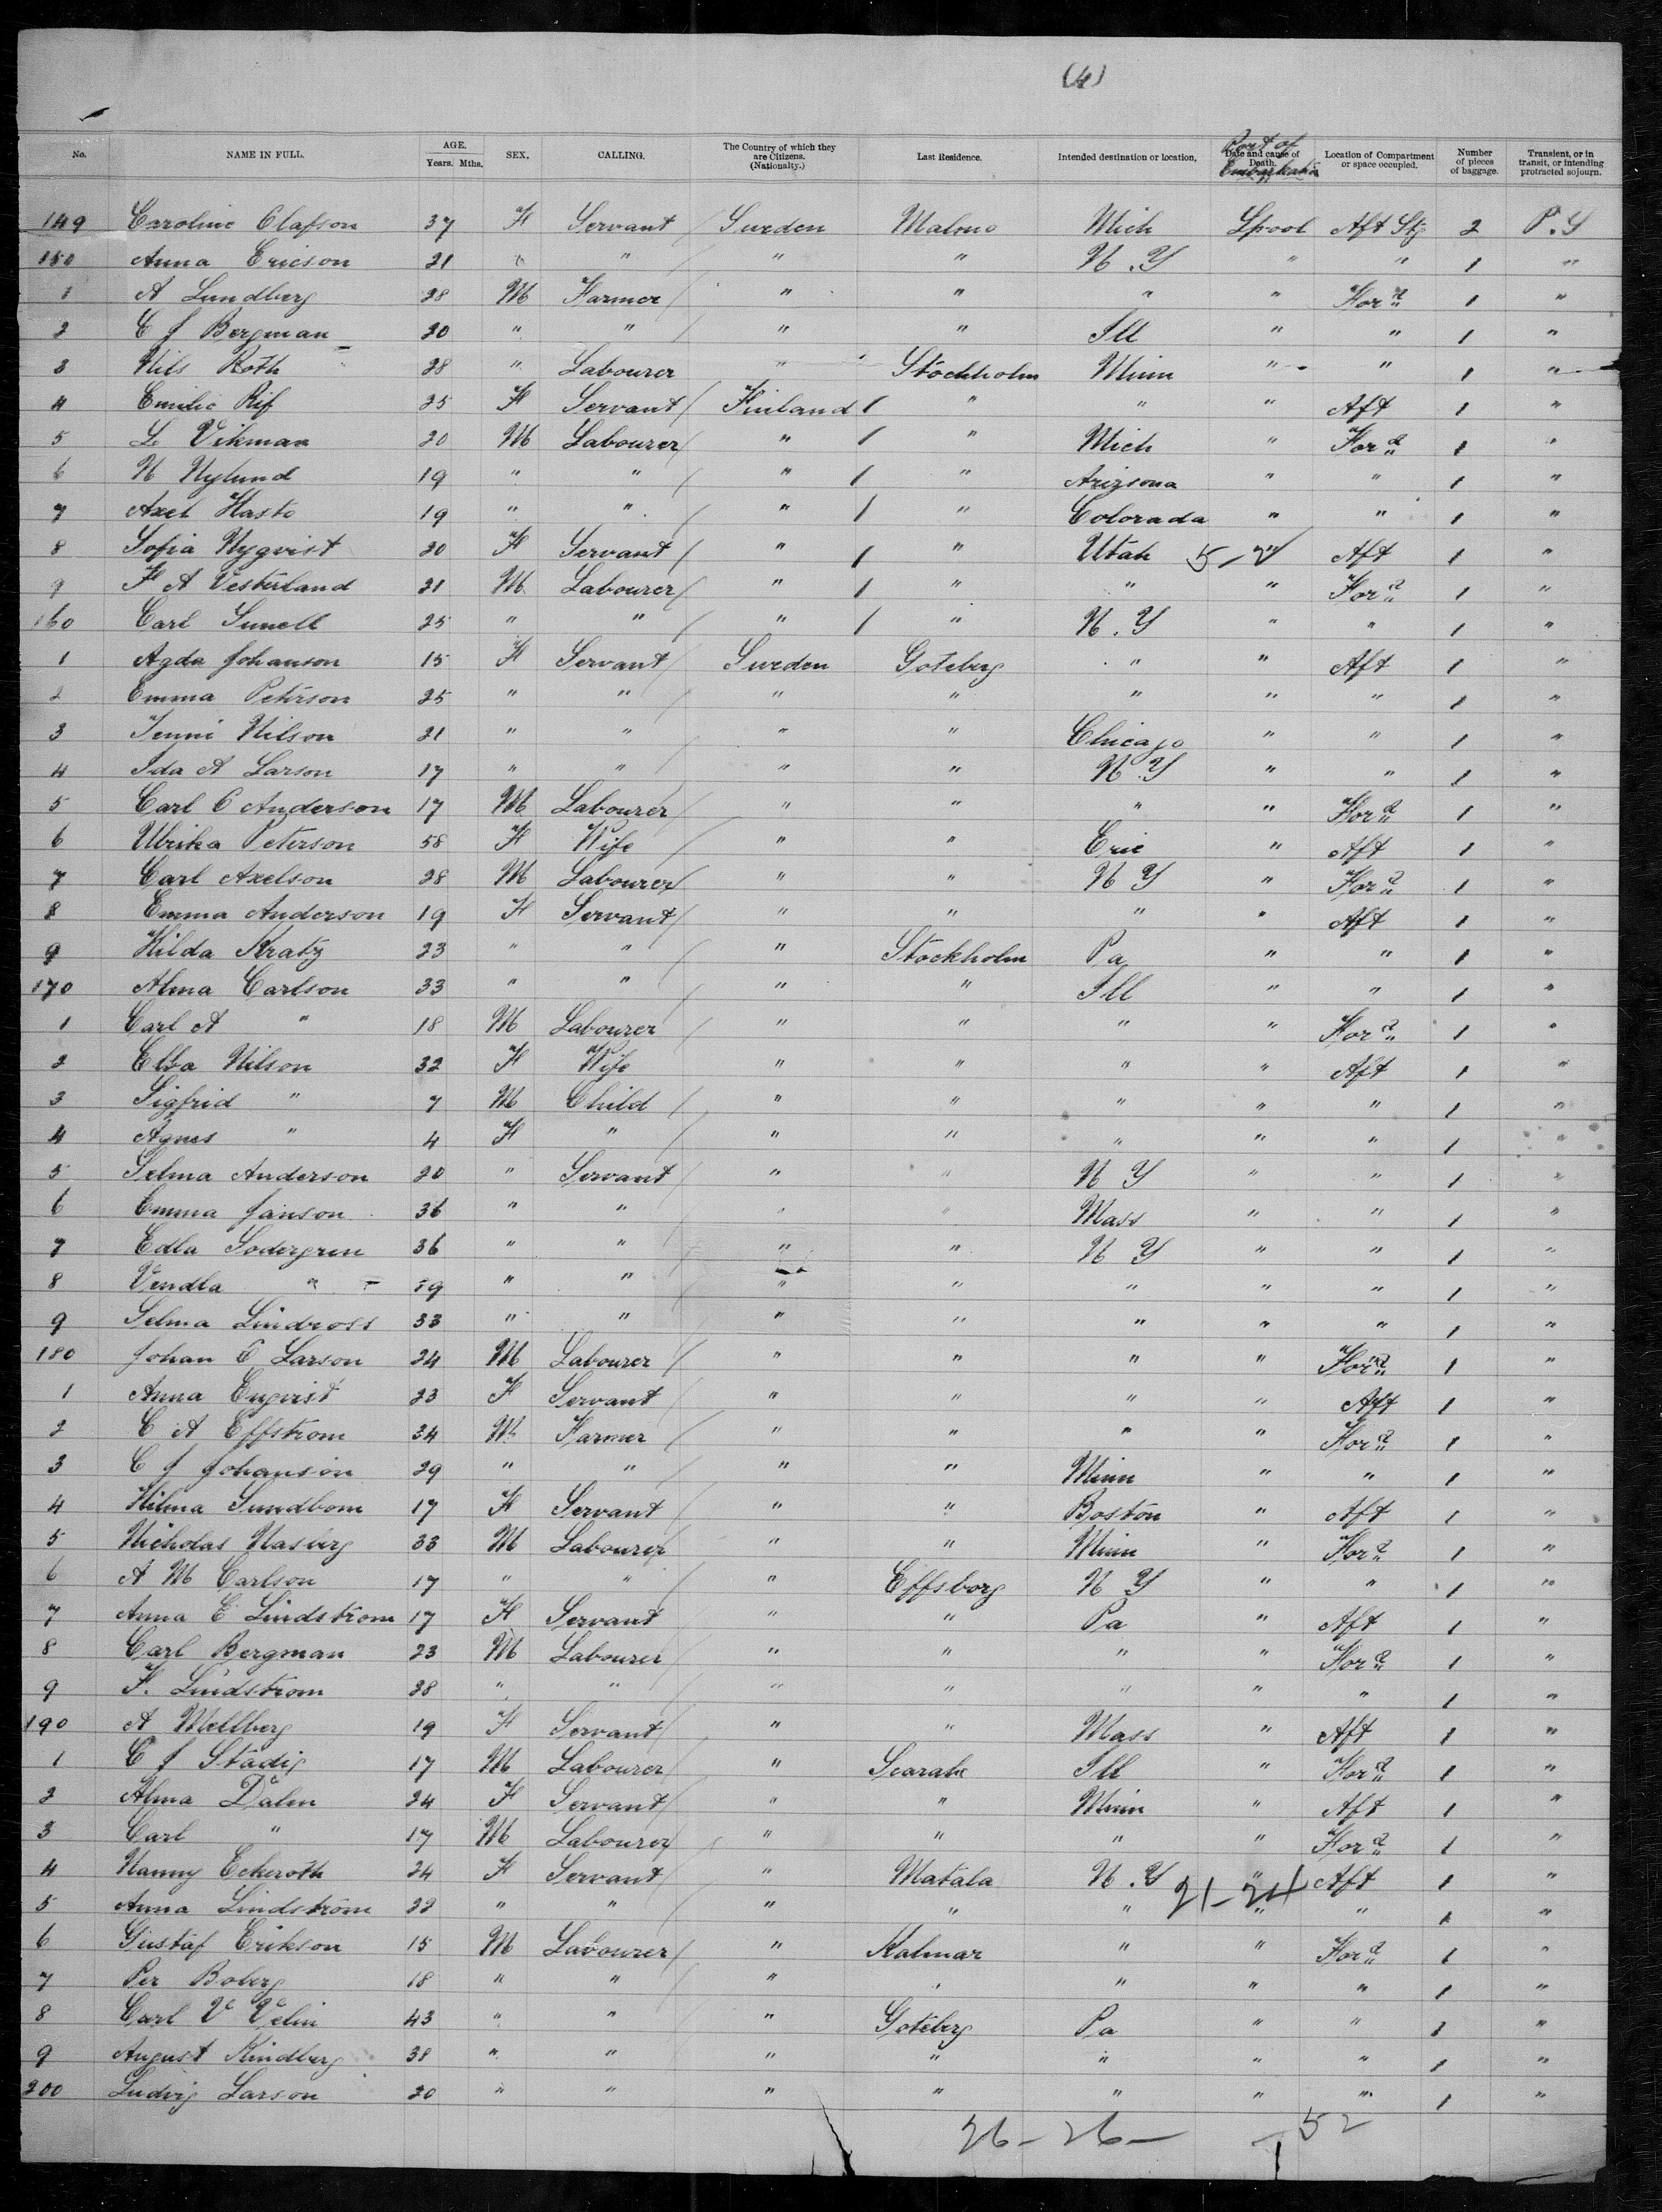 (4)
No. NAME IN FULL. AGE. Years. Mths. SEX. CALLING. The Country of which they are Citizens. (Nationality.) Last Residence. Intended destination or location. Date and cause of Death. Port of Embarkation Location of Compartment or space occupied. Number of pieces of baggage. Transient, or in transit, or intending protracted sojourn.
149 Caroline Olafson 37 F Servant Sweden Malmo Mich Lpool Aft Stg 2 P.S
150 Anna Ericson 21 " " " " N.Y " " 1 "
1 A Lundberg 28 M Farmer " " " " Ford 1 "
2 C J Bergman 20 " " " " Ill " " 1 "
3 Nils Roth 28 " Labourer " Stockholm Minn " " 1 "
4 Emilie Rif 25 F Servant Finland " " " Aft 1 "
5 L Vikman 20 M Labourer " " Mich " Ford 1 "
6 N Nylund 19 " " " " Arizsona " " 1 "
7 Axel Hasto 19 " " " " Colorada " " 1 "
8 Sofia Nyqvist 20 F Servant " " Utah 5-7 Aft 1 "
9 F A Vesterland 21 M Labourer " " " " Ford 1 "
160 Carl Sunell 25 " " " " N.Y " " 1 "
1 Agda Johanson 15 F Servant Sweden Goteberg " " Aft 1 "
2 Emma Peterson 25 " " " " " " " 1 "
3 Jenni Nilson 21 " " " " Chicago " " 1 "
4 Ida A Larson 17 " " " " N.Y " " 1 "
5 Carl C Anderson 17 M Labourer " " " " Ford 1 "
6 Ulrika Peterson 58 F Wife " " Erie " Aft 1 "
7 Carl Axelson 28 M Labourer " " N Y " Ford 1 "
8 Emma Anderson 19 F Servant " " " " Aft 1 "
9 Hilda Kratz 23 " " " Stockholm Pa " " 1 "
170 Alma Carlson 33 " " " " Ill " " 1 "
1 Carl A " 18 M Labourer " " " " Ford 1 "
2 Ebba Nilson 32 F Wife " " " " Aft 1 "
3 Sigfrid " 7 M Child " " " " " 1 "
4 Agnes " 4 F " " " " " " 1 "
5 Selma Anderson 20 " Servant " " N Y " " 1 "
6 Emma Janson 36 " " " " Mass " " 1 "
7 Edla Sodergren 36 " " " " N Y " " 1 "
8 Vendla " 59 " " " " " " " 1 "
9 Selma Lindross 33 " " " " " " " 1 "
180 Johan E Larson 24 M Labourer " " " " Ford 1 "
1 Anna Enqvist 23 F Servant " " " " Aft 1 "
2 C A Effstrom 34 M Farmer " " " " Ford 1 "
3 C J Johanson 29 " " " " Minn " " 1 "
4 Hilma Sundbom 17 F Servant " " Boston " Aft 1 "
5 Nicholas Nasberg 33 M Labourer " " Minn " Ford 1 "
6 A M Carlson 17 " " " Effsborg N Y " " 1 "
7 Anna C Lindstrom 17 F Servant " " Pa " Aft 1 "
8 Carl Bergman 23 M Labourer " " " " Ford 1 "
9 F. Lindstrom 28 " " " " " " " 1 "
190 A Mellberg 19 F Servant " " Mass " Aft 1 "
1 C J Stadig 17 M Labourer " Ill " Ford 1 "
2 Alma Dalm 24 F Servant " " Minn " Aft 1 "
3 Carl " 17 M Labourer " " " " Ford 1 "
4 Nanny Eckeroth 24 F Servant " Matala N.Y " Aft 1 "
21-24
5 Anna Lindstrom 22 " " " " " " " 1 "
6 Gustaf Erikson 15 M Labourer " Kalmar " " Ford 1 "
7 Per Boberg 18 " " " " " " " 1 "
8 Carl V Velin 43 " " " Goteberg Pa " " 1 "
9 August Kindberg 38 " " " " " " " 1 "
200 Ludvig Larson 20 " " " " " " " 1 "
26-26- 52